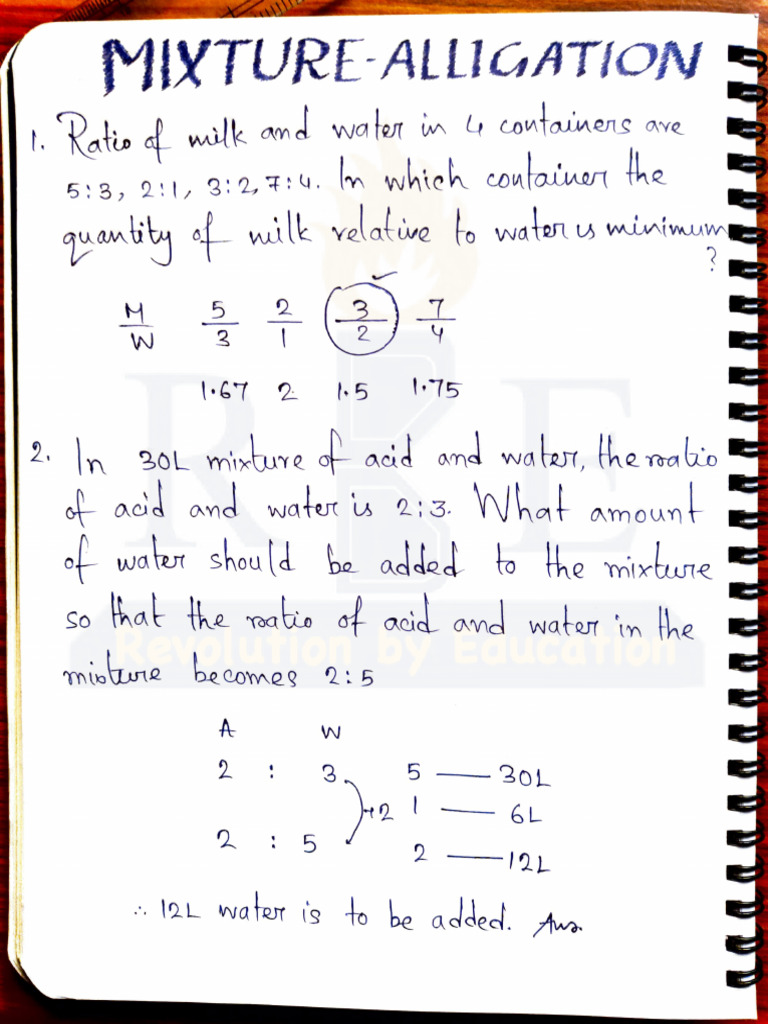 MIXTURE-ALLIGATION
1. Ratio of milk and water in 4 containers are
5:3, 2:1, 3:2, 7:4. In which container the
quantity of milk relative to water is minimum
?
M/W 5/3 2/1 3/2 ✓ 7/4
1.67 2 1.5 1.75
2. In 30L mixture of acid and water, the ratio
of acid and water is 2:3. What amount
of water should be added to the mixture
so that the ratio of acid and water in the
Revolution by Education
mixture becomes 2:5
A W
2 : 3 5 — 30L
+2 1 — 6L
2 : 5 2 — 12L
∴ 12L water is to be added. Ans.
RBE